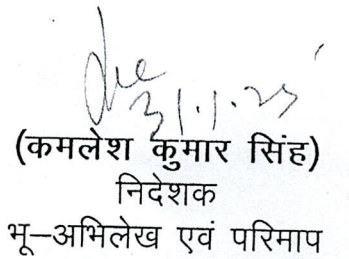 31.1.25
(कमलेश कुमार सिंह)
निदेशक
भू–अभिलेख एवं परिमाप